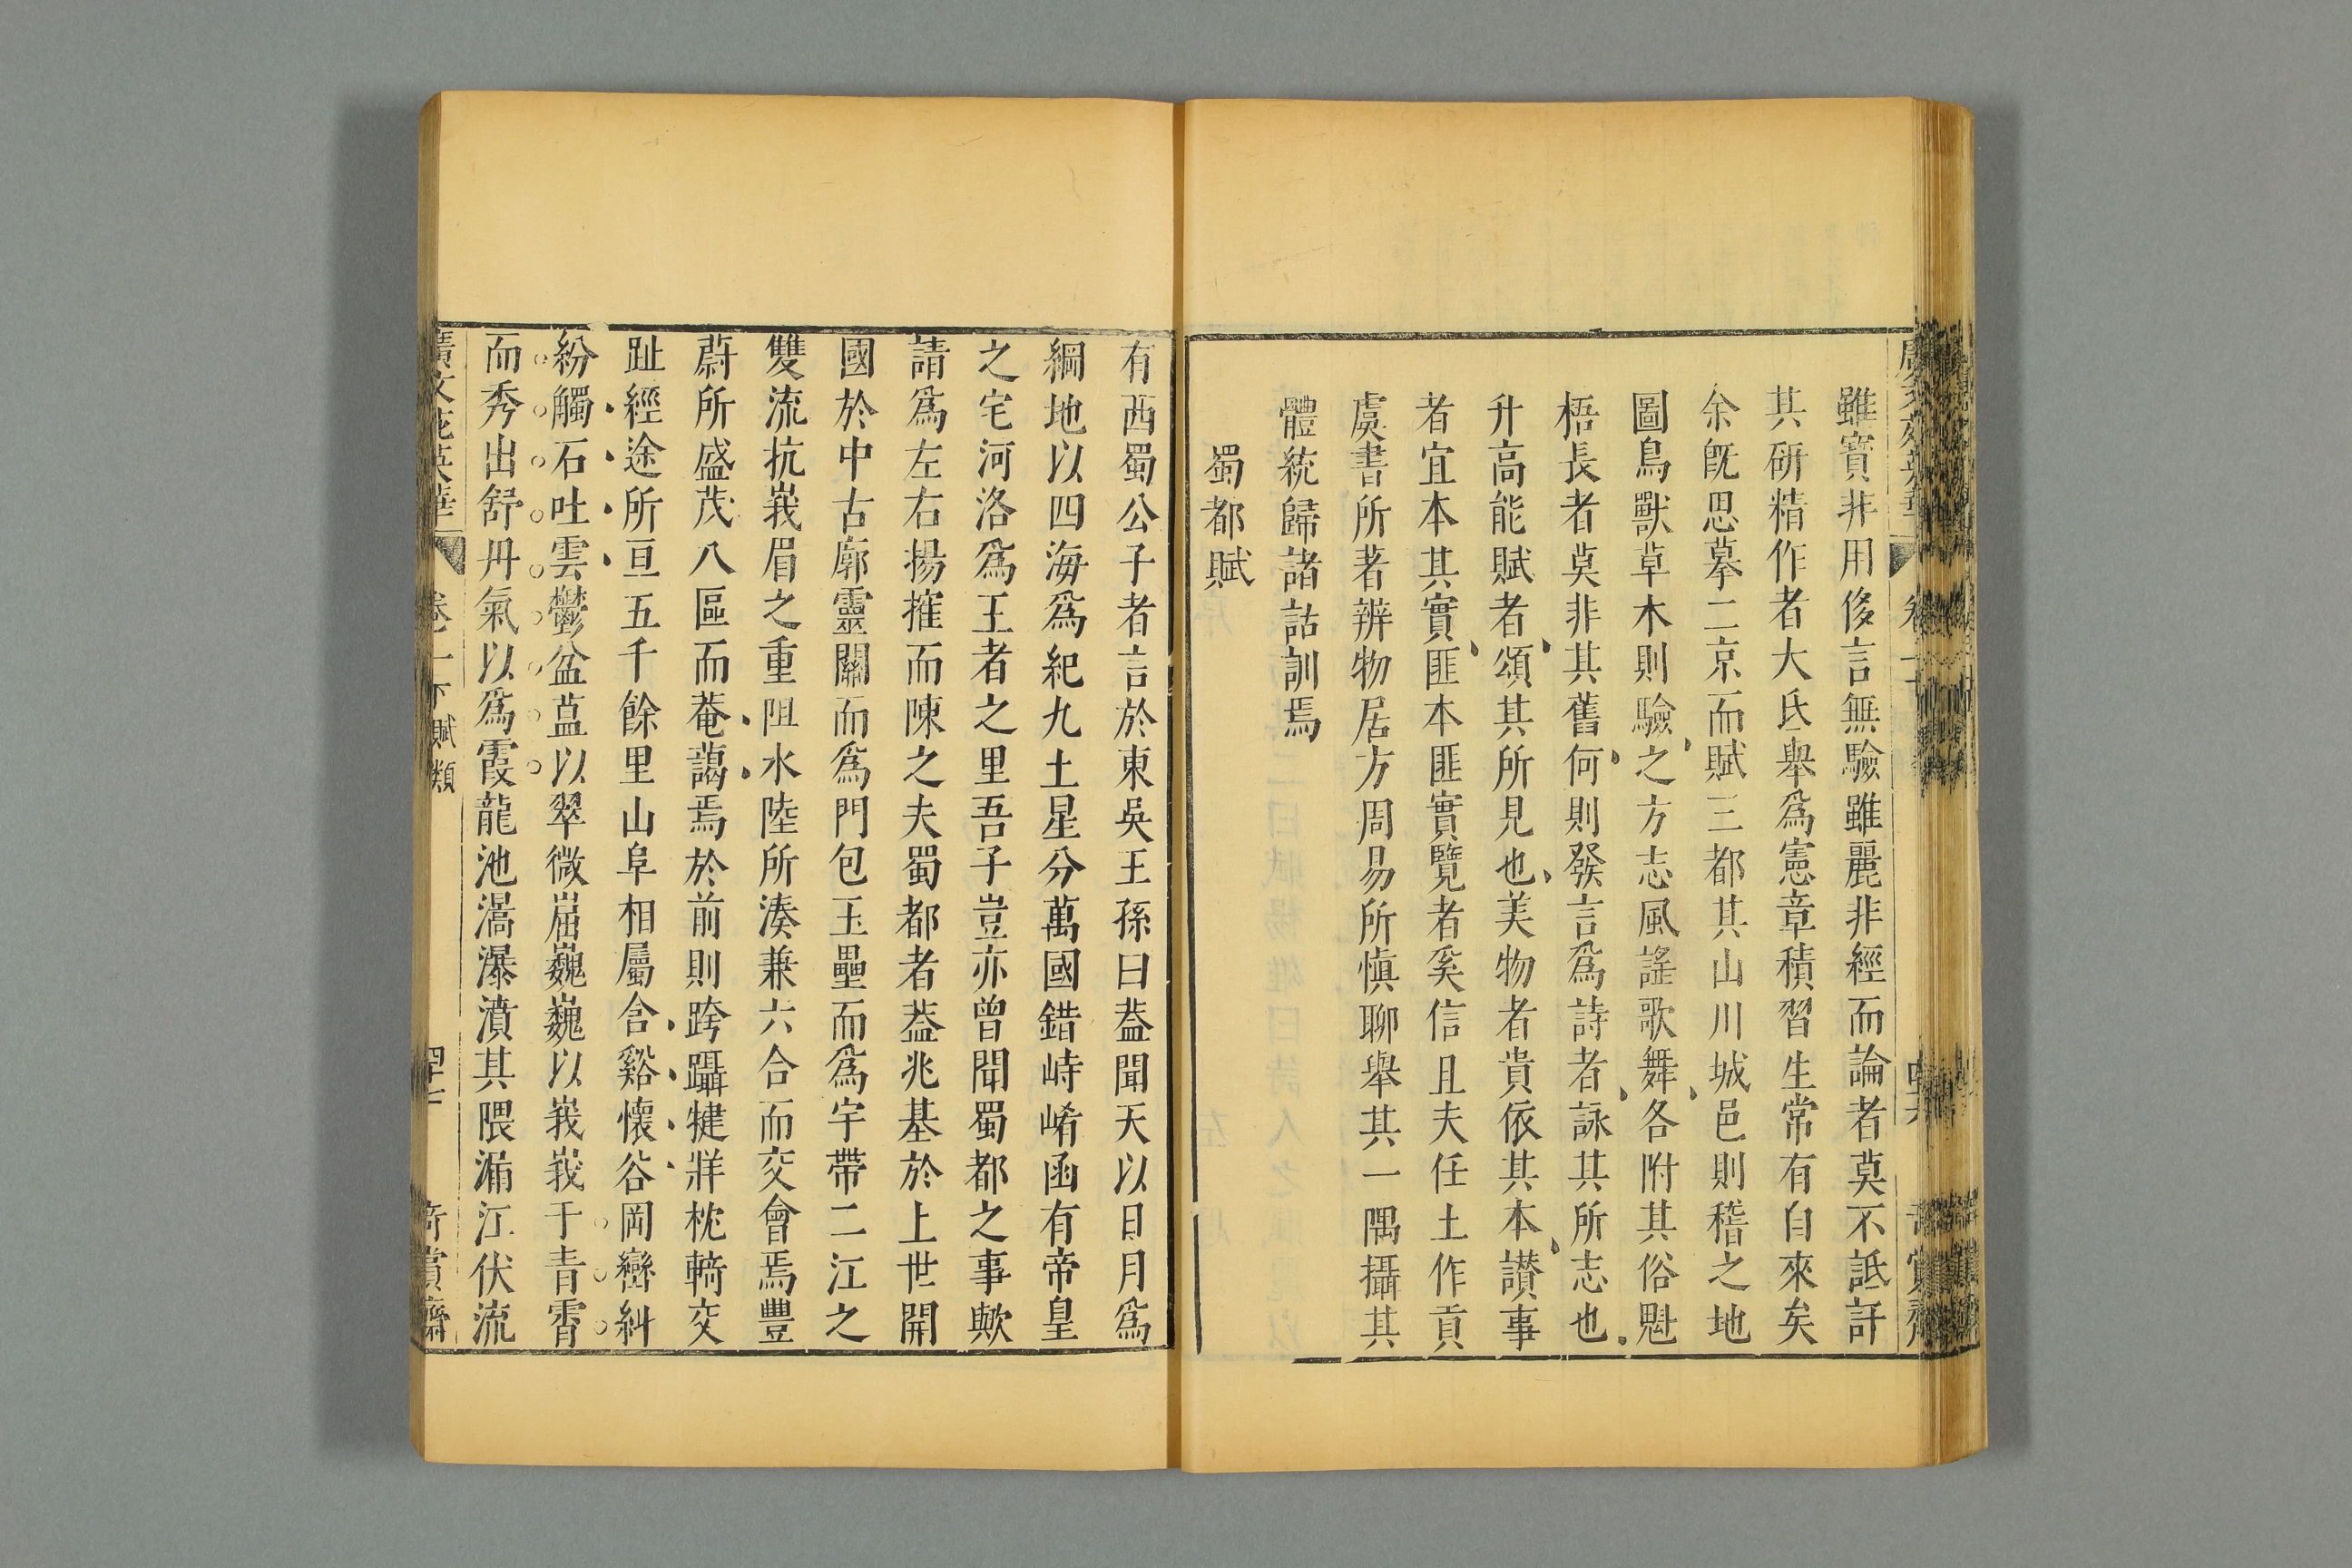 雖寳非用侈言無驗雖麗非經而論者莫不詆訐
其研精作者大氐舉爲憲章積習生常有自來矣
余旣思摹二京而賦三都其山川城邑則稽之地
圖鳥獸草木則驗之方志風謠歌舞各附其俗魁
梧長者莫非其舊何則發言爲詩者詠其所志也
升高能賦者頌其所見也美物者貴依其本讃事
者宜本其實匪本匪實覽者奚信且夫任土作貢
虞書所著辨物居方周易所愼聊舉其一隅攝其
體統歸諸詁訓焉
蜀都賦
有西蜀公子者言於東吳王孫曰葢聞天以日月爲
綱地以四海爲紀九土星分萬國錯峙崤函有帝皇
之宅河洛爲王者之里吾子豈亦曾聞蜀都之事歟
請爲左右揚搉而陳之夫蜀都者葢兆基於上世開
國於中古廓靈關而爲門包玉壘而爲宇帶二江之
雙流抗峩眉之重阻水陸所湊兼六合而交會焉豐
蔚所盛茂八區而菴藹焉於前則跨躡犍牂枕輢交
趾經途所亘五千餘里山阜相屬含谿懷谷岡巒糾
紛觸石吐雲鬱葐蒀以翠微崛巍巍以峩峩于青霄
而秀出舒丹氣以爲霞龍池㶇瀑濆其隈漏江伏流
廣文苑英華 卷十一下 賦類 奇賞齋